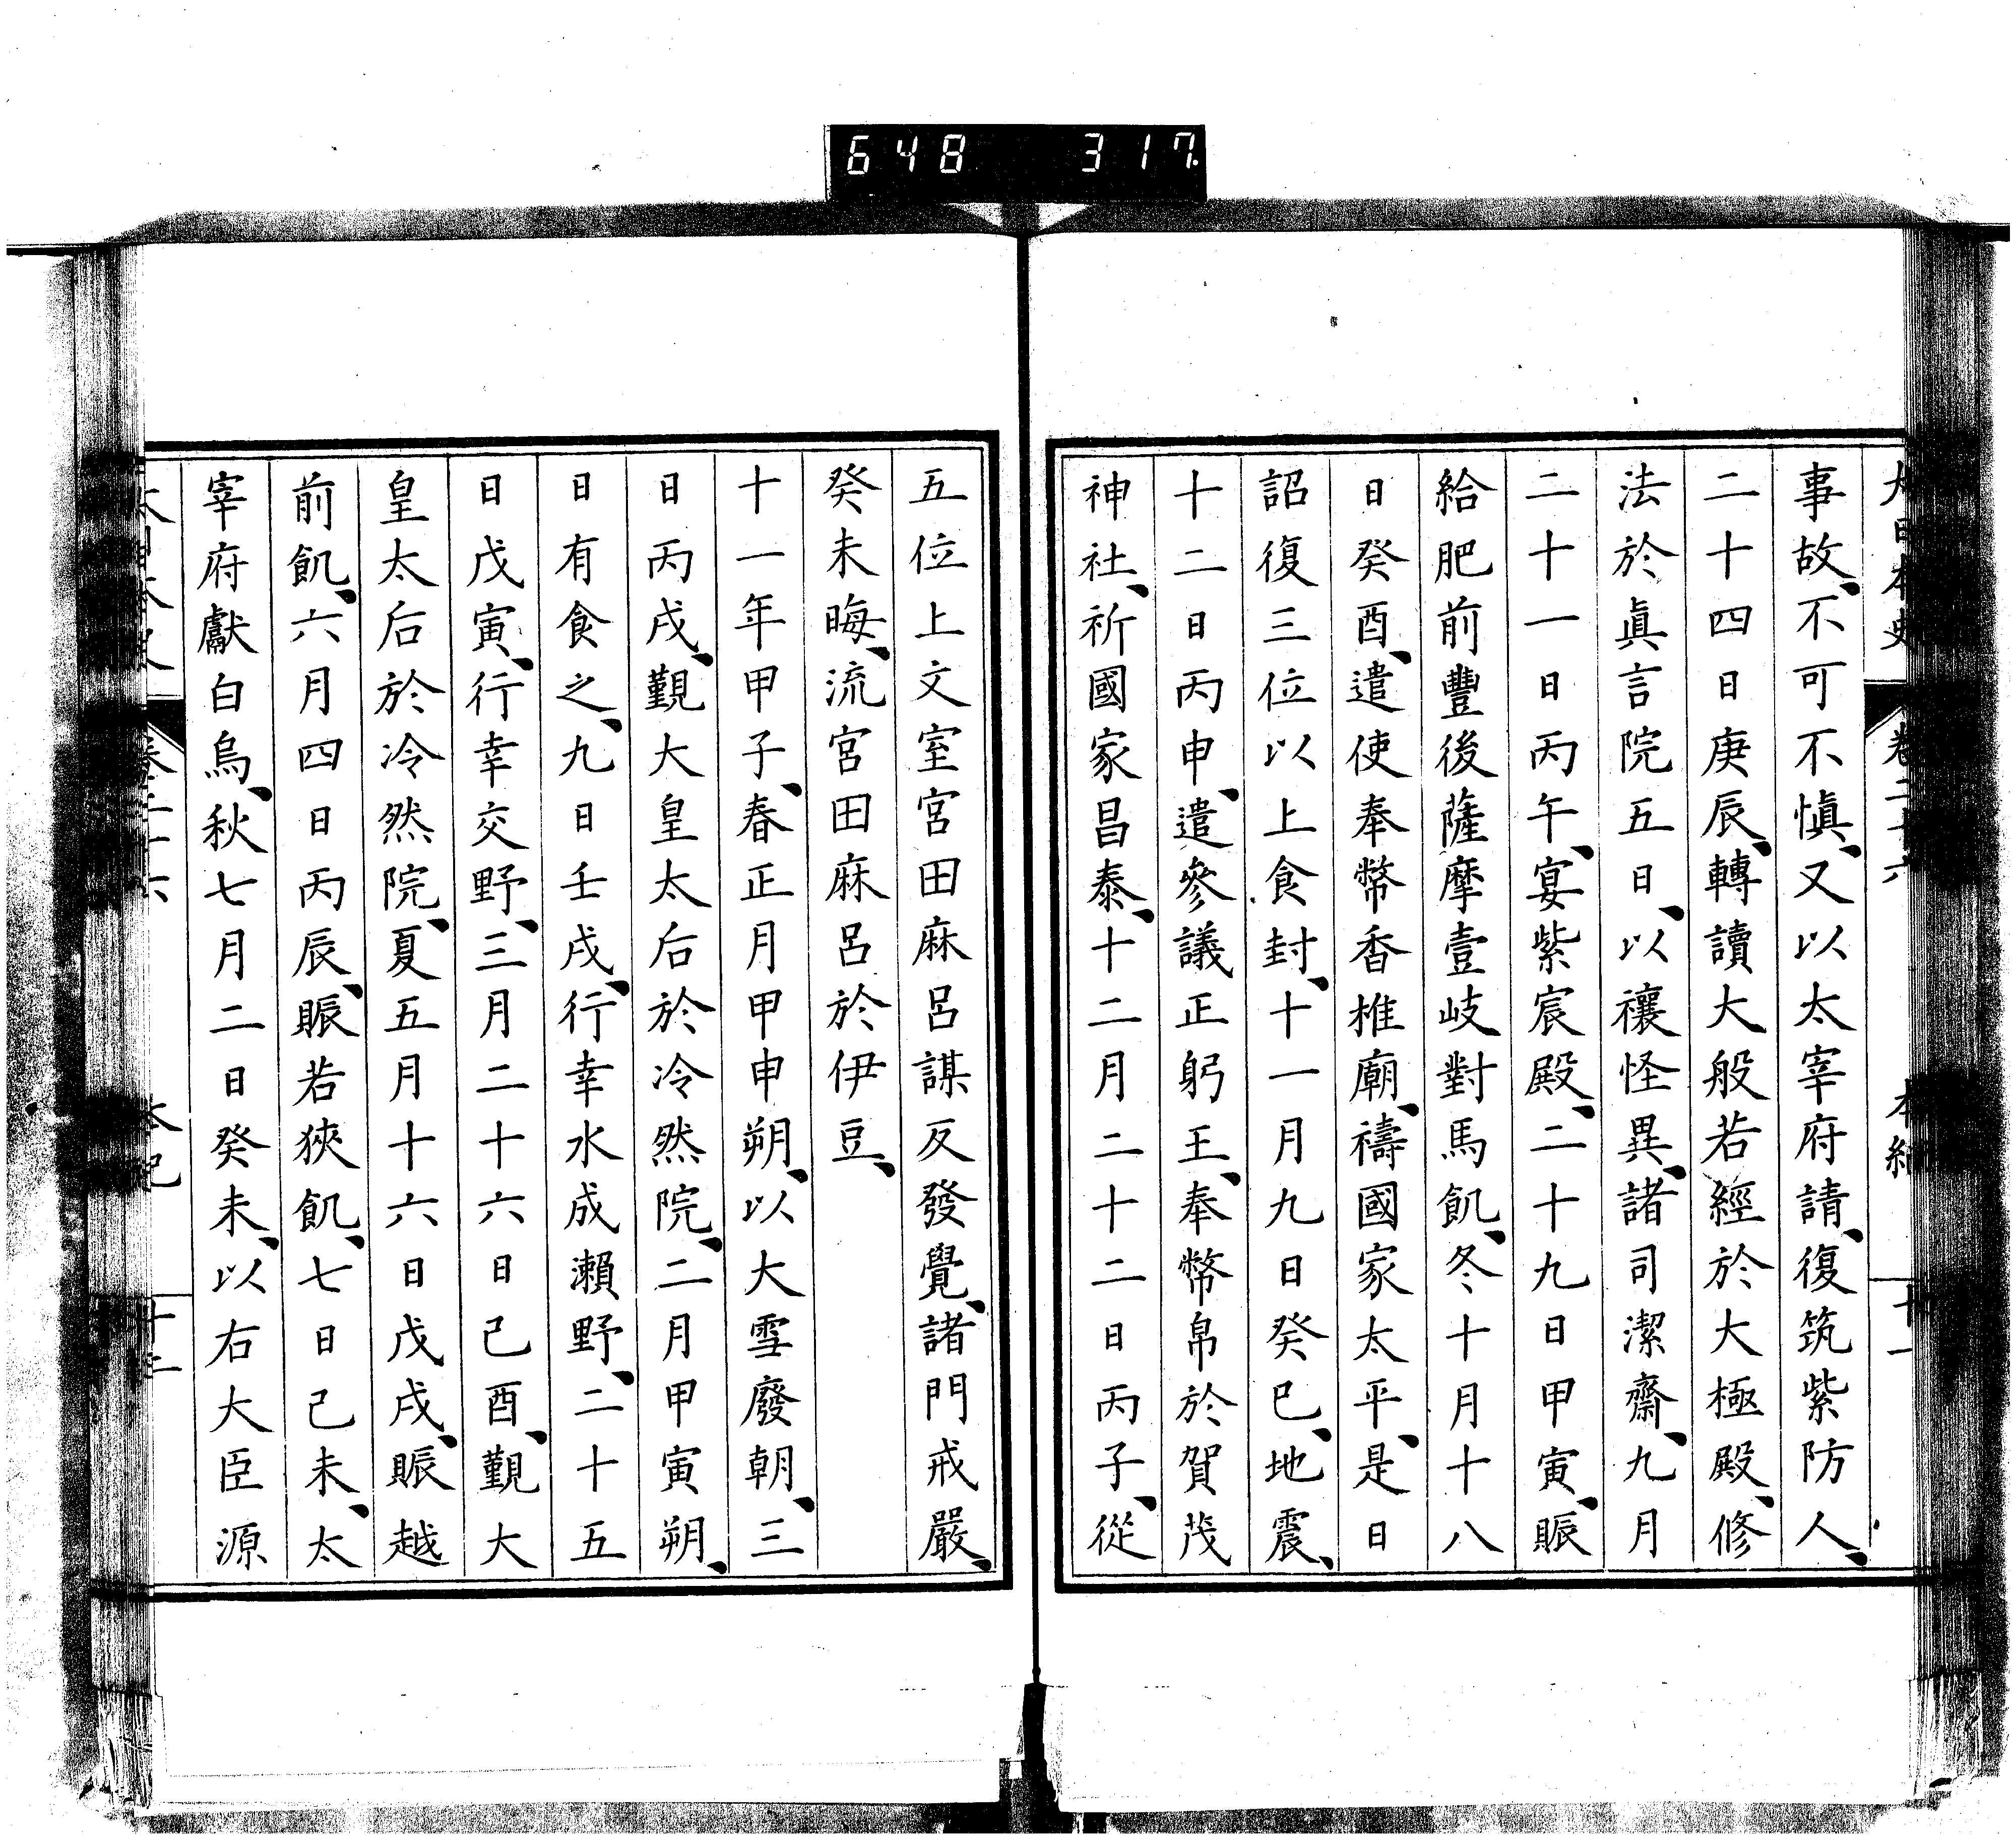 648 317
大日本史 卷二十六 本紀 十一
事故、不可不愼、又以太宰府請、復筑紫防人、
二十四日庚辰、轉讀大般若經於大極殿、修
法於眞言院五日、以禳怪異、諸司潔齋、九月
二十一日丙午、宴紫宸殿、二十九日甲寅、賑
給肥前豐後薩摩壹岐對馬飢、冬十月十八
日癸酉、遣使奉幣香椎廟、禱國家太平、是日
詔復三位以上食封、十一月九日癸巳、地震、
十二日丙申、遣參議正躬王、奉幣帛於賀茂
神社、祈國家昌泰、十二月二十二日丙子、從
五位上文室宮田麻呂謀反發覺、諸門戒嚴、
癸未晦、流宮田麻呂於伊豆、
十一年甲子、春正月甲申朔、以大雪廢朝、三
日丙戌、覲大皇太后於冷然院、二月甲寅朔、
日有食之、九日壬戌、行幸水成瀨野、二十五
日戊寅、行幸交野、三月二十六日己酉、覲大
皇太后於冷然院、夏五月十六日戊戌、賑越
前飢、六月四日丙辰、賑若狹飢、七日己未、太
宰府獻白烏、秋七月二日癸未、以右大臣源